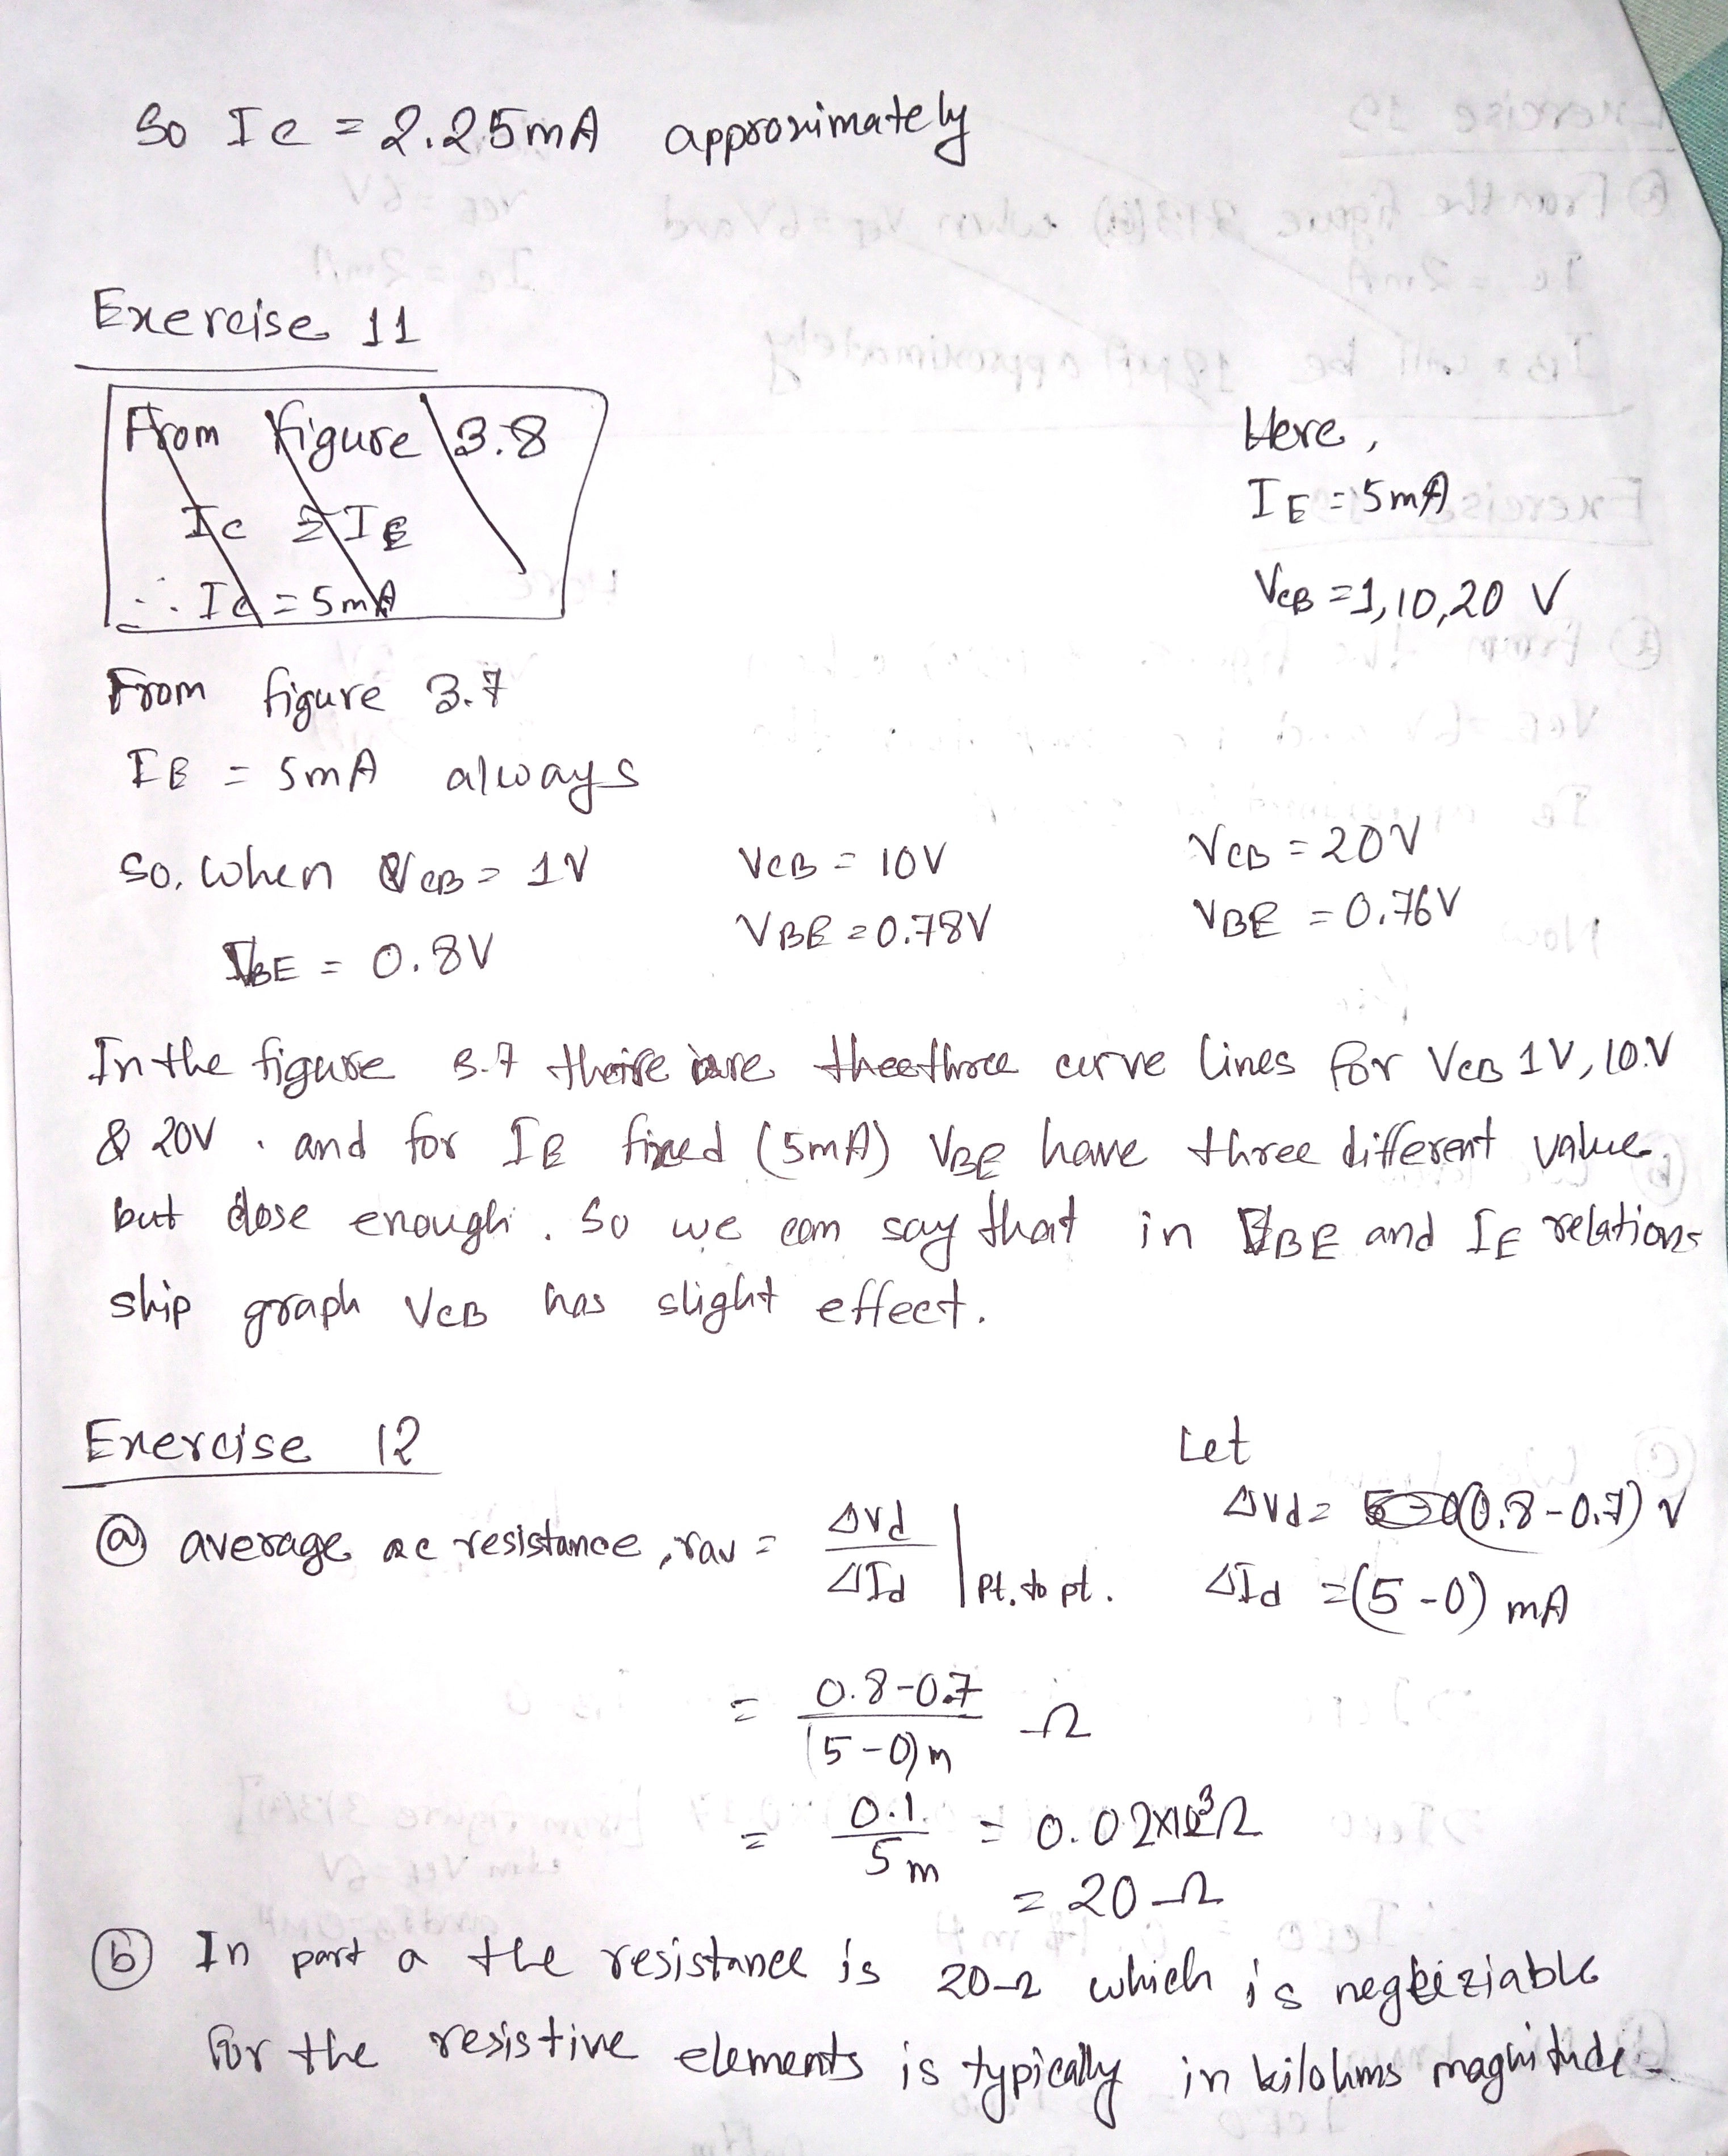 So Ic = 2.25mA approximately
Exercise 11
From figure 3.8
Ic ≅ IE
∴ Ic = 5mA
Here,
IE = 5mA
VCB = 1, 10, 20 V
From figure 3.7
IE = 5mA always
So, when VCB = 1V
VBE = 0.8V
VCB = 10V
VBE = 0.78V
VCB = 20V
VBE = 0.76V
In the figure 3.7 there are three curve lines for VCB 1V, 10V
& 20V. and for IE fixed (5mA) VBE have three different value
but close enough. So we can say that in VBE and IE relation-
ship graph VCB has slight effect.
Exercise 12
ⓐ average ac resistance, rav = ΔVd / ΔId | Pt. to pt.
Let
ΔVd = (0.8-0.7) V
ΔId = (5-0) mA
= 0.8-0.7 / (5-0)m Ω
= 0.1 / 5m = 0.02×10³Ω
= 20Ω
ⓑ In part a the resistance is 20Ω which is negleiziable
for the resistive elements is typically in kilohms magnitude.